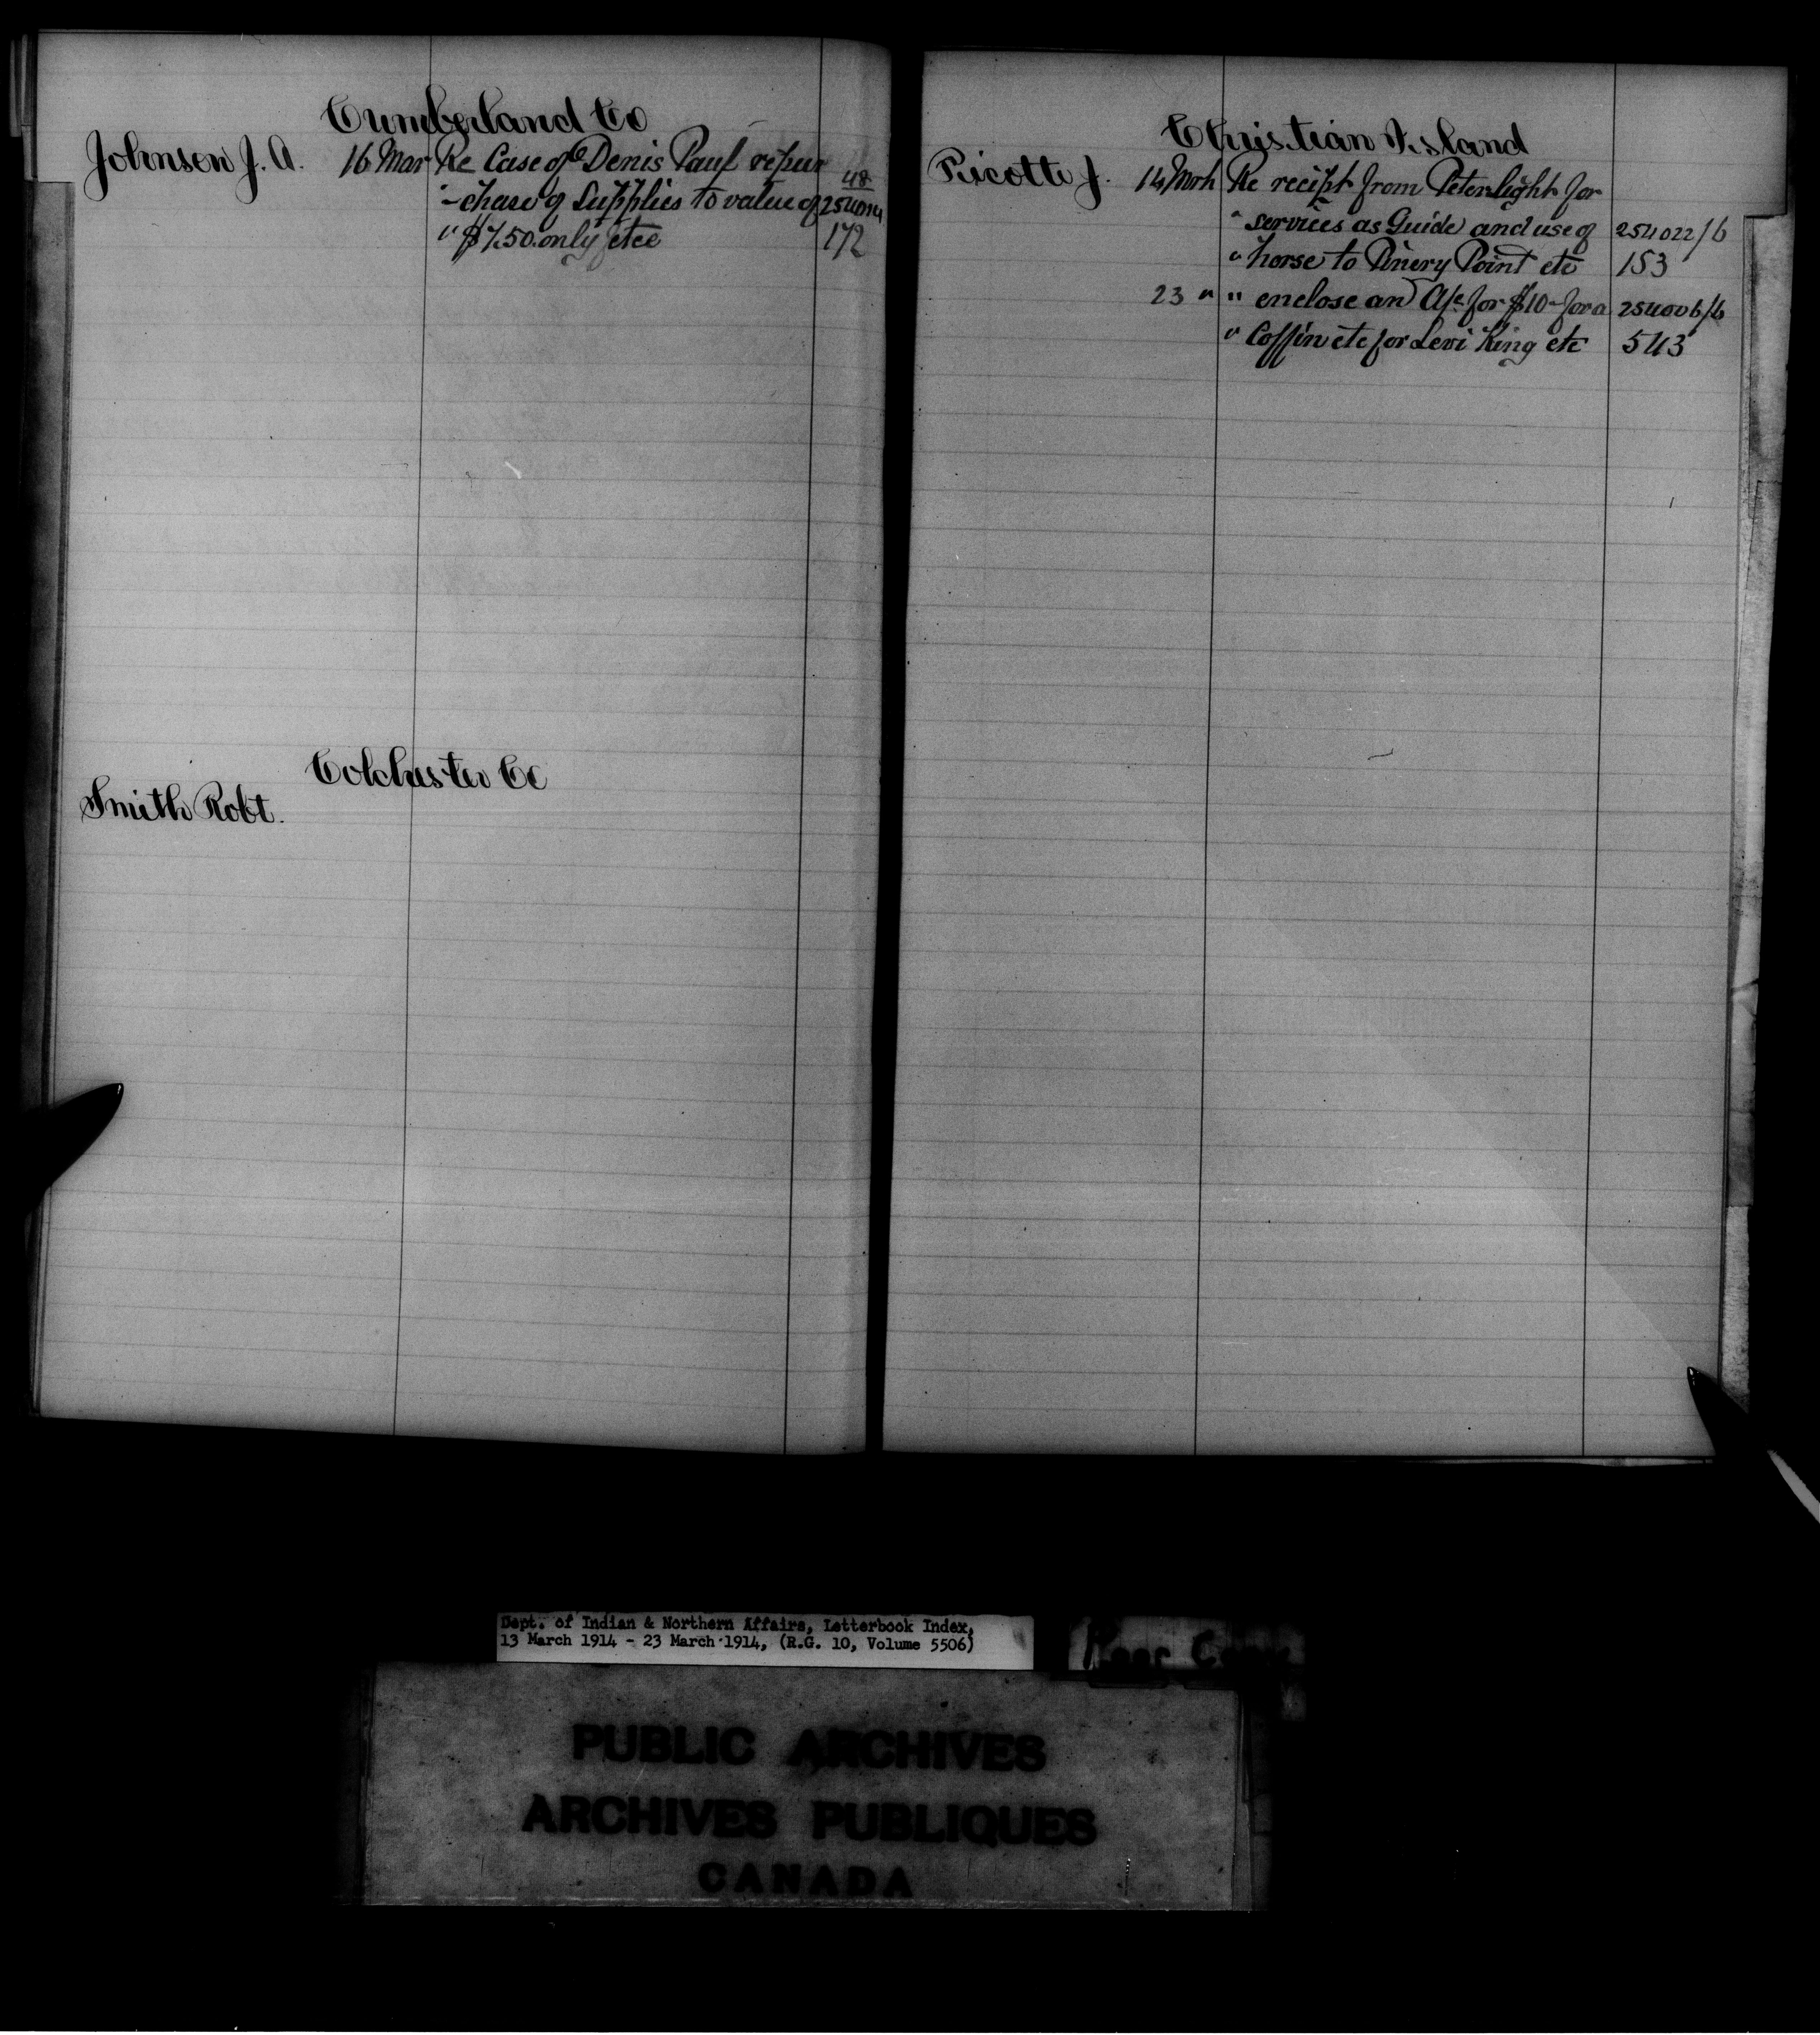 Cumberland Co
Johnson J. A. 16 Mar Re Case of Denis Paul repur 48
" -chase of Supplies to value of 254014
" $7.50 only etce 172
Colchester Co
Smith Robt.
Christian Island
Picotte J. 14 Mrch Re recipt from Peter Light for
" services as Guide and use of 254022/6
" horse to Pinery Point etc 153
23 " " enclose an A/c for $10- for a 254006/6
" Coffin etc for Levi King etc 543
Dept. of Indian & Northern Affairs, Letterbook Index,
13 March 1914 - 23 March 1914, (R.G. 10, Volume 5506)
PUBLIC ARCHIVES
ARCHIVES PUBLIQUES
CANADA